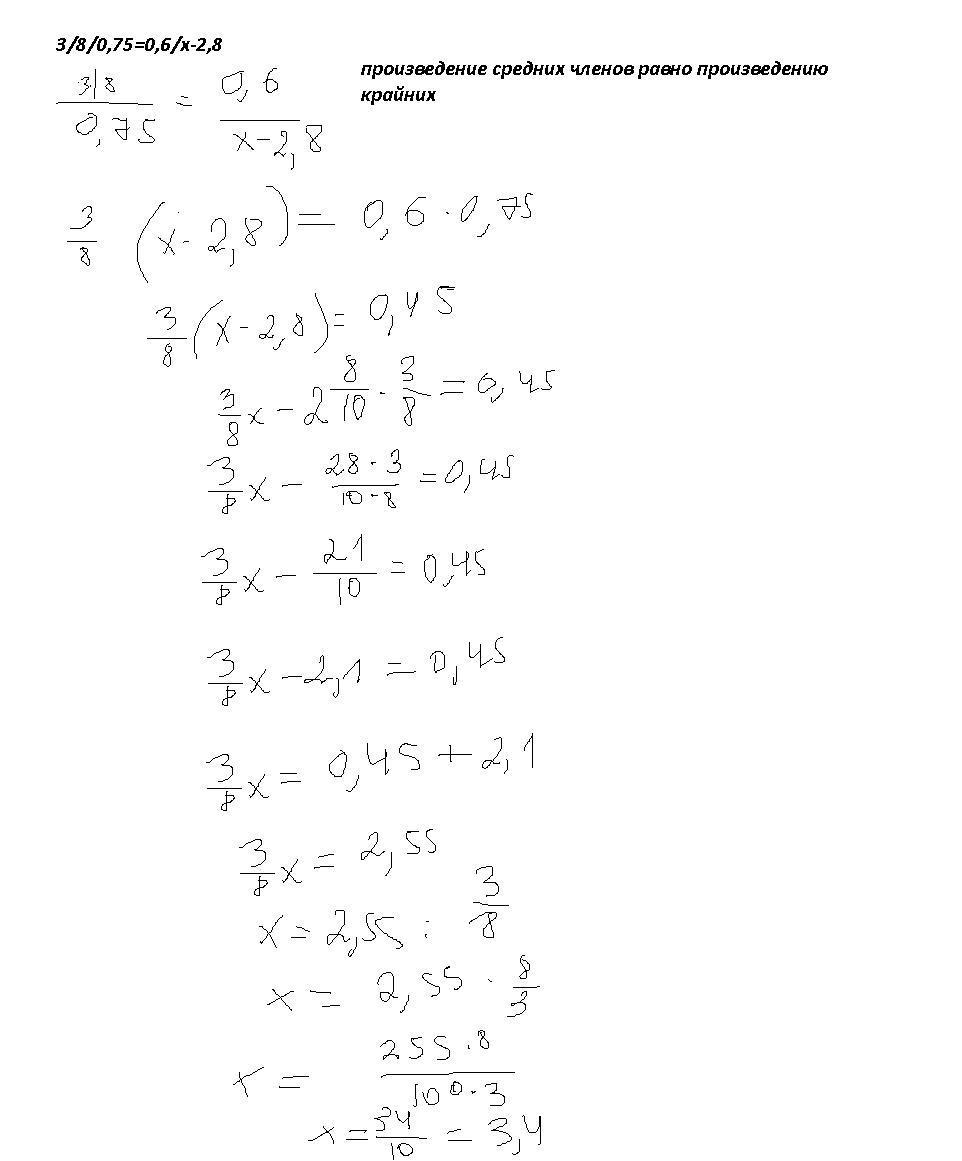 3/8/0,75=0,6/х-2,8
произведение средних членов равно произведению
крайних
3/8 / 0,75 = 0,6 / x-2,8
3/8 (x-2,8) = 0,6 · 0,75
3/8 (x-2,8) = 0,45
3/8 x - 2 8/10 · 3/8 = 0,45
3/8 x - 28·3 / 10·8 = 0,45
3/8 x - 21/10 = 0,45
3/8 x - 2,1 = 0,45
3/8 x = 0,45 + 2,1
3/8 x = 2,55
x = 2,55 : 3/8
x = 2,55 · 8/3
x = 255·8 / 100·3
x = 34/10 = 3,4